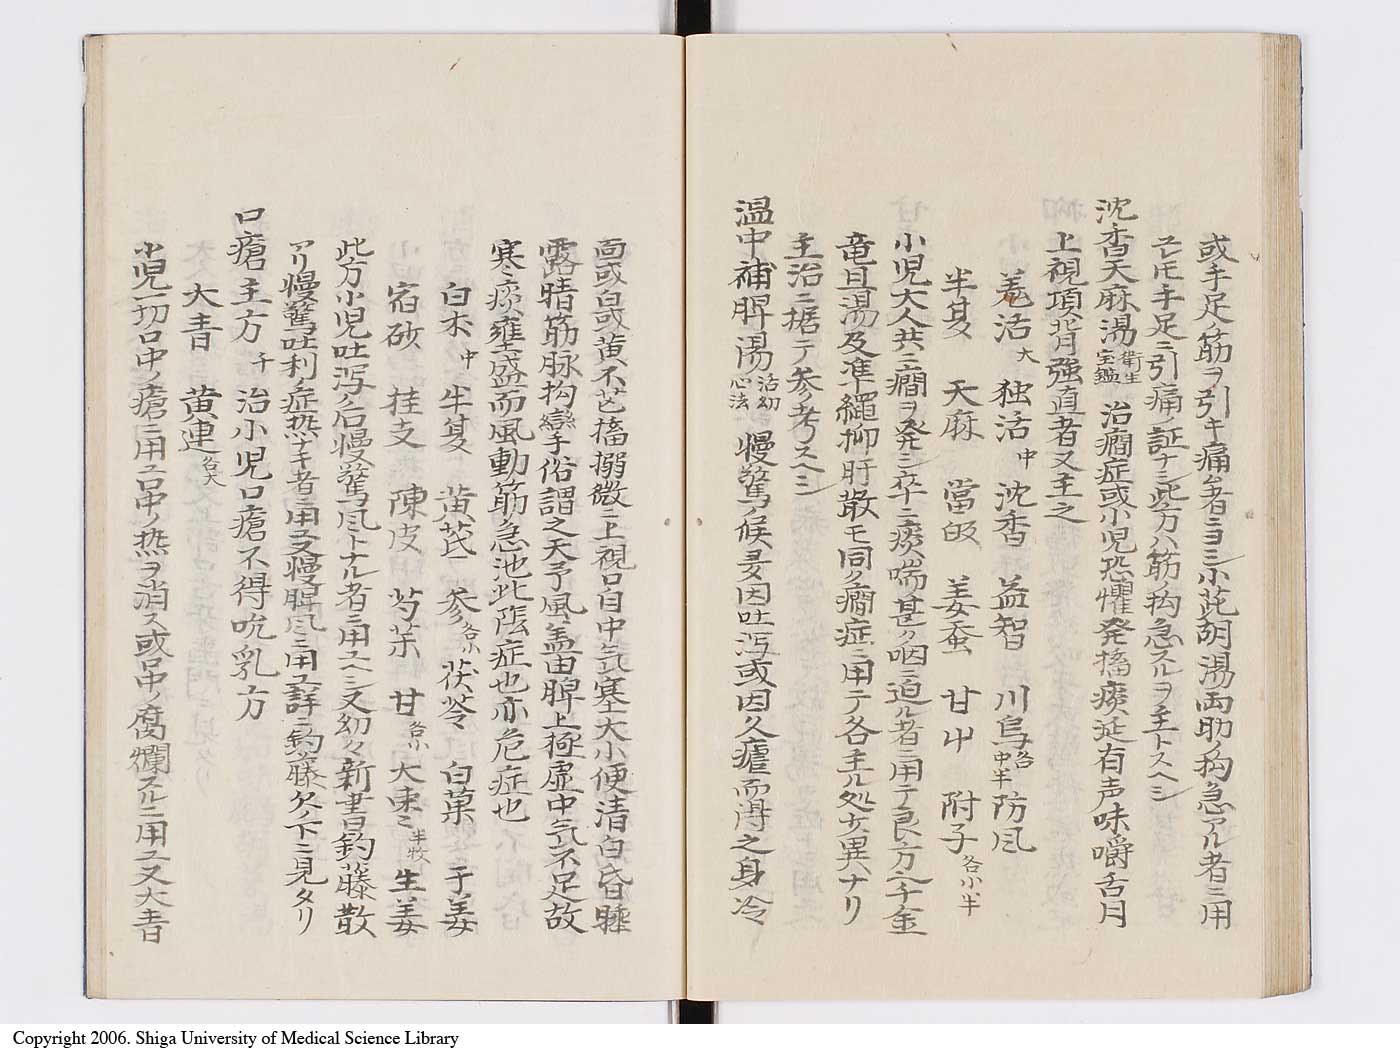 或手足ノ筋ヲ引キ痛ム者ニヨシ小茈胡湯両助ノ拘急アル者ニ用
ヒ𪜈手足ニ引痛ノ証ナシ此方ハ筋拘急スルヲ主トスヘシ
沈香天麻湯 衛生宝鑑 治癇症或小児恐懼発搐痰延有声味嚼舌月
上視項背強直者又主之
羗活 大 独活 中 沈香 益智 川烏 各中半 防風
半夏 天麻 當皈 姜蚕 甘艸 附子 各小半
小児大人共ニ癇ヲ発シ卒ニ痰喘甚ク咽ニ迫ル者ニ用テ良方千金
竜胆湯及準縄抑肝散モ同ク癇症ニ用テ各主ル処少異ナリ
主治ニ据テ参考スヘシ
温中補脾湯 活幼心法 慢驚ノ候多因吐瀉或因久瘧而得之身冷
面或白或黄不甚搐搦微ニ上視口自中気寒大小便清白昏睡
露睛筋脉拘攣手俗謂之天予風盖由脾上極虚中気不足故
寒ミ痰壅盛而風動筋急池此陰症也亦危症也
白朮 中 半夏 黄芪 参 各小 茯苓 白菓 干姜
宿砂 桂支 陳皮 芍薬 甘 各小 大棗ミ 半枚 生姜
此方小児吐瀉ノ后慢驚風トナル者ニ用ユヘシ又幼々新書釣藤散
アリ慢驚吐利ノ症熱ナキ者ニ用ユ又慢脾風ニ用ユ詳ニ釣藤ノ下ニ見タリ
口瘡主方 千 治小児口瘡不得吮乳方
大青 黄連 各大
小児一切口中ノ瘡ニ用ユ口中ノ熱ヲ消ス或口中ノ腐爛スルニ用ユ又大青
Copyright 2006. Shiga University of Medical Science Library